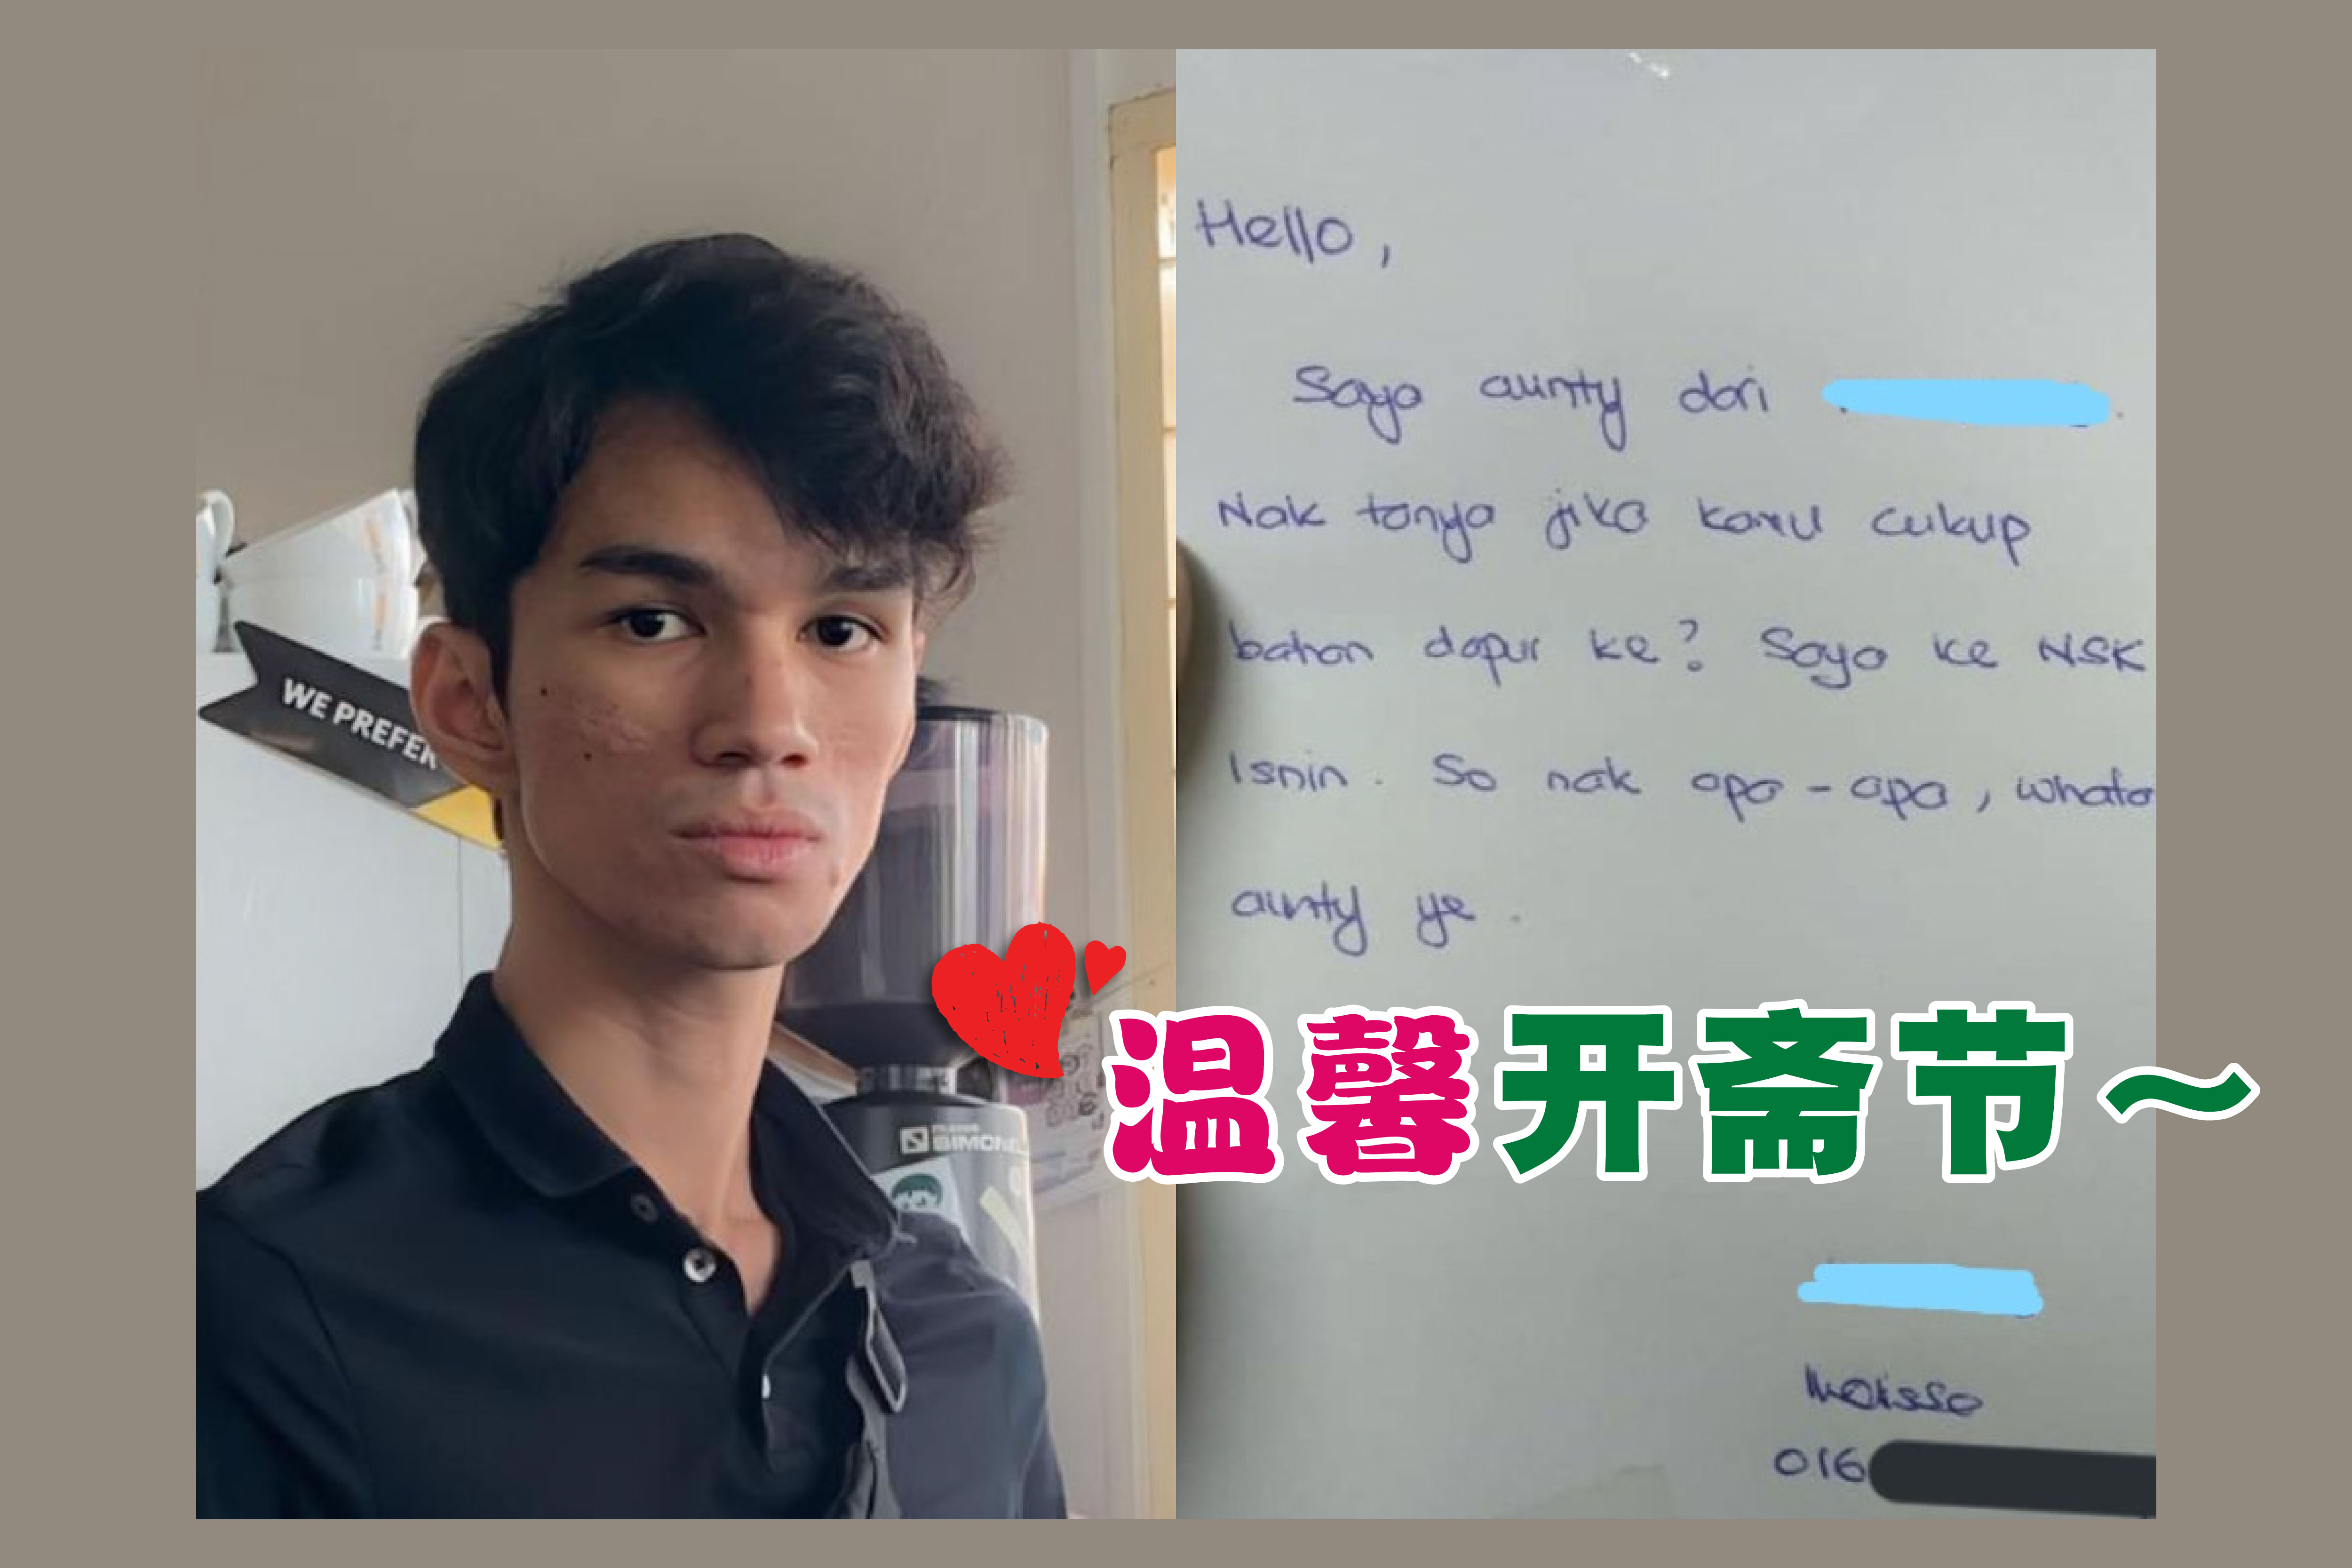 WE PREFER
Hello,
Saya aunty dari
Nak tanya jika kamu cukup
bahan dapur ke? Saya ke NSK
Isnin. So nak apa-apa, whats
aunty ye.
温馨开斋节~
016